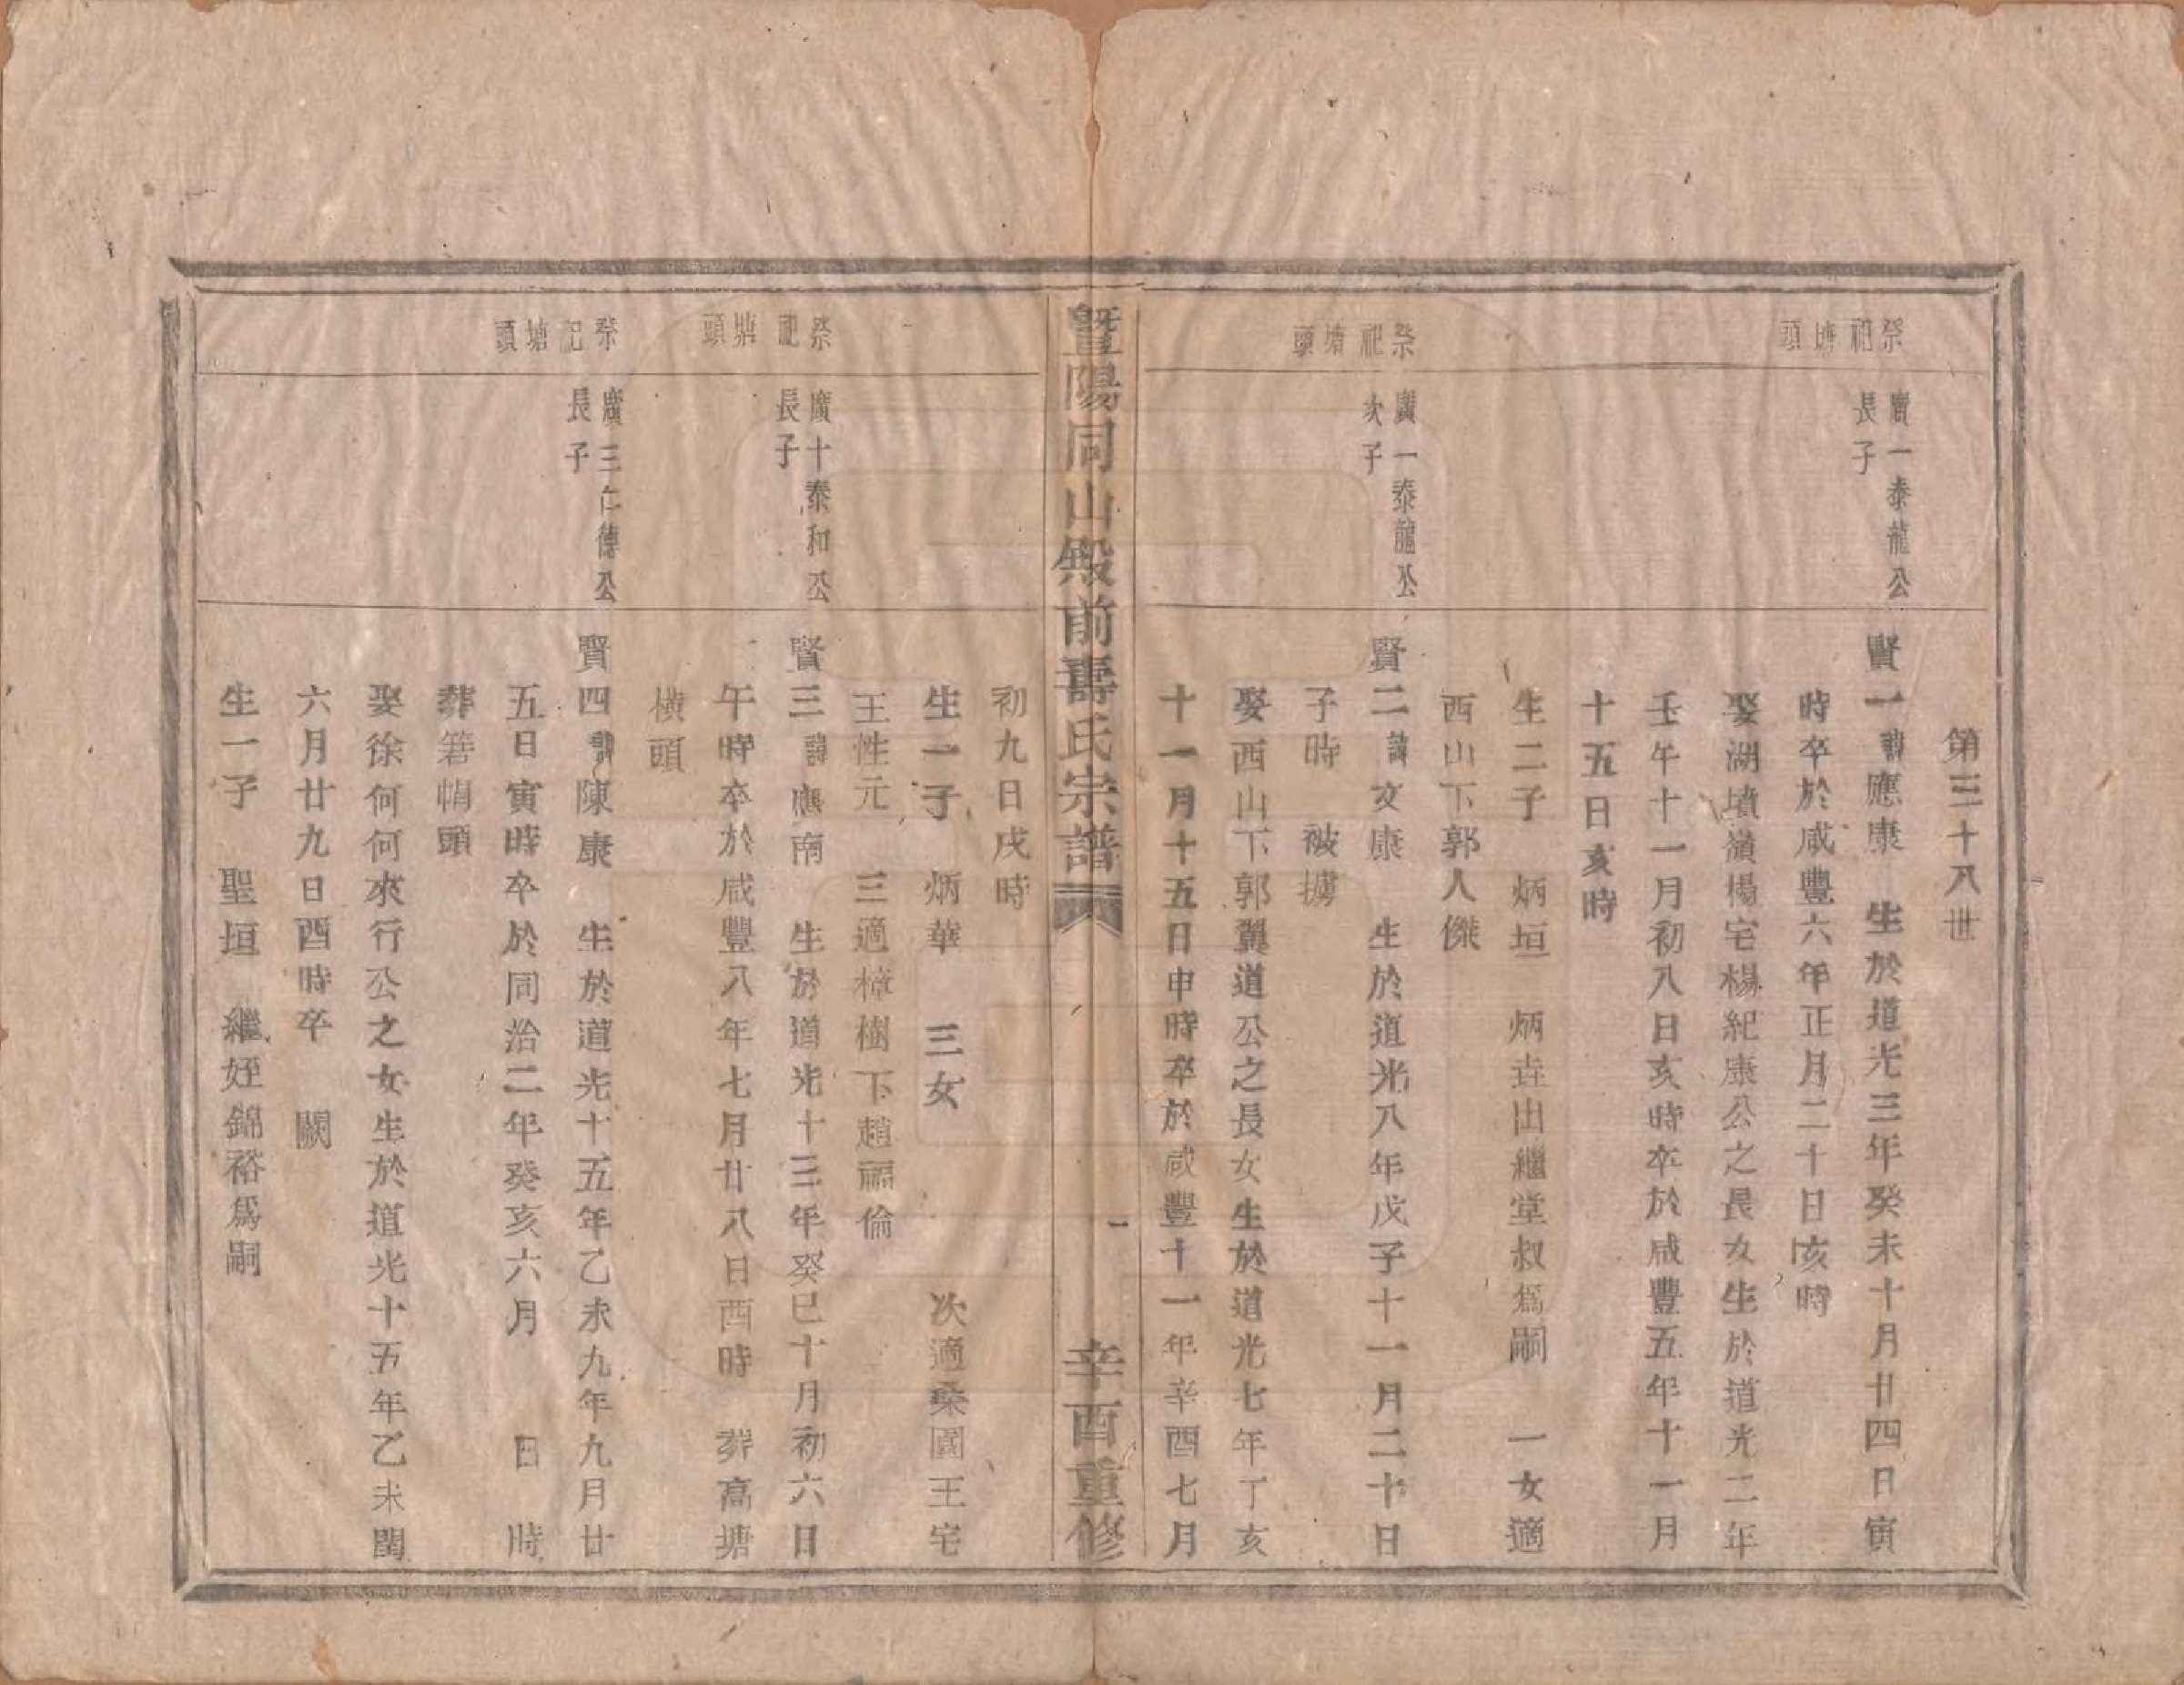 第三十八世
祭祀塘頭
廣一泰龍公
長子
賢一諱應康　生於道光三年癸未十月廿四日寅
時卒於咸豐六年正月二十日亥時
娶湖墳嶺楊宅楊紀康公之長女生於道光二年
壬午十一月初八日亥時卒於咸豐五年十一月
十五日亥時
生二子　炳垣　炳垚出繼堂叔爲嗣　一女適
西山下郭人傑
祭祀塘頭
廣一泰龍公
次子
賢二諱文康　生於道光八年戊子十一月二十日
子時　被擄
娶西山下郭翼道公之長女生於道光七年丁亥
十一月十五日申時卒於咸豐十一年辛酉七月
暨陽同山殿前壽氏宗譜
一
辛酉重修
初九日戌時
生一子　炳華　三女　次適桑園王宅
王性元　三適樟樹下趙福倫
祭祀塘頭
廣十泰和公
長子
賢三諱應南　生於道光十三年癸巳十月初六日
午時卒於咸豐八年七月廿八日酉時　葬高塘
橫頭
祭祀塘頭
廣三仁德公
長子
賢四諱陳康　生於道光十五年乙未九年九月廿
五日寅時卒於同治二年癸亥六月　日　時
葬箬帽頭
娶徐何何來行公之女生於道光十五年乙未閏
六月廿九日酉時卒　闕
生一子　聖垣　繼姪錦裕爲嗣